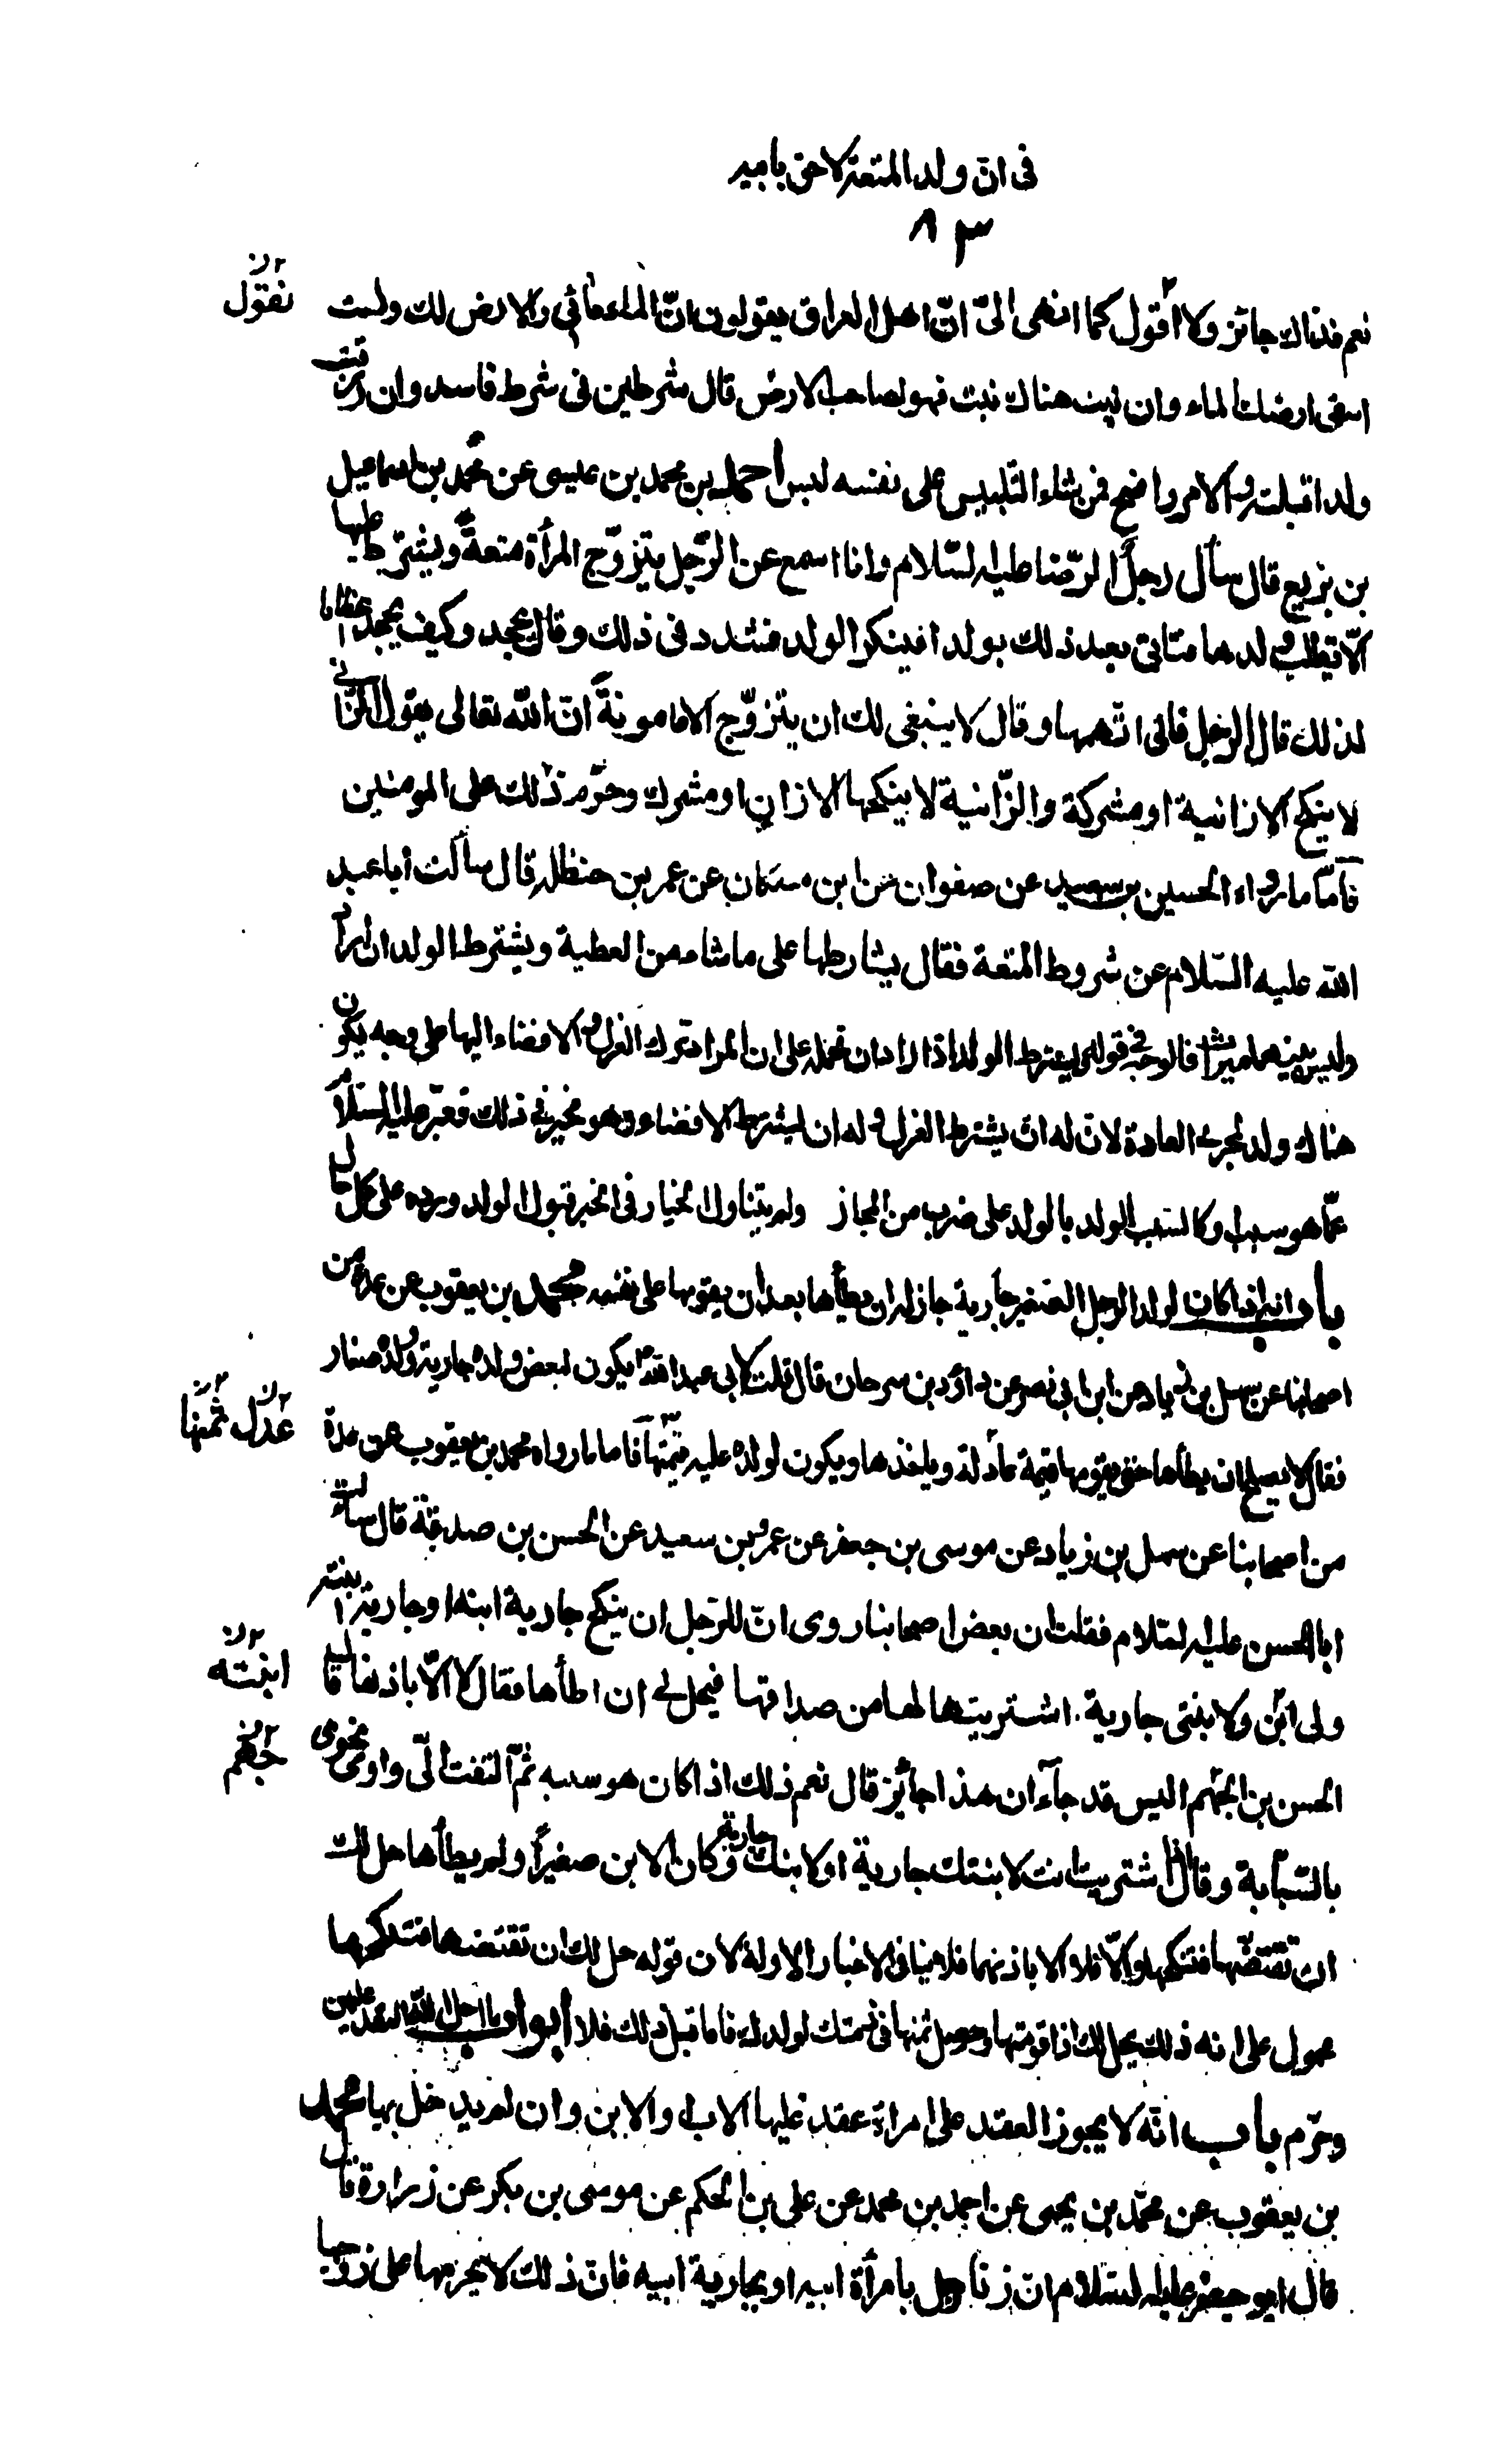 فى ان ولد المتعة لاحق بابيه
٨٣
نعم فذاك جائز ولا أقول كما انهى الىّ انّ اهل العراق يقولون انّ الماء مائى والارض لك ولست
نقول
اسقى ارضك الماء وان نبت هناك نبت فهو لصاحب الارض قال شرطين فى شرط فاسد وان رزقت
ولدا قبلته والامر واضح فمن شاء التلبيس على نفسه لبس احمد بن محمد بن عيسى عن محمد بن اسماعيل
بن بزيع قال سأل رجل الرّضا عليه السّلام وانا اسمع عن الرّجل يتزوّج المرأة متعة ويشترط عليها
الّا تطلب ولدها فتاتى بعد ذلك بولد افينكر الولد فشدد فى ذلك وقال يجحد وكيف يجحد اعظاما
لذلك قال الرجل فانى اتّهمها وقال لا ينبغى لك ان يتزوّج الا مامونة انّ اللّه تعالى يقول الزّانى
لا ينكح الا زانية او مشركة والزّانية لا ينكحها الا زان او مشرك وحرّم ذلك على المومنين
فأمّا ما رواه الحسين بن سعيد عن صفوان عن ابن مسكان عن عمر بن حنظلة قال سألت أبا عبد
اللّه عليه السّلام عن شروط المتعة فقال يشارطها على ما شاء من العطية ويشترط الولد ان اراد
وليس بينهما ميراث فالوجه فى قوله يشترط الولد اذا اراد ان نحمله على ان المراد ترك العزل والافضاء اليها على وجه يكون
هناك ولد لمجرى العادة لان له ان يشترط العزل وله ان يشترط الافضاء وهو مخير فى ذلك فعبّر عليه السّلام
عمّا هو سبب وكالسبب الولد بالولد على ضرب من المجاز ولم يتناول الخيار فى الخبر قبول الولد ورده على كل حال
باب انه اذا كان لولد الرجل الصغير جارية جاز له ان يطأها بعد ان يقومها على نفسه محمد بن يعقوب عن عدة من
اصحابنا عن سهل بن زياد عن ابن ابى نصر عن داود بن سرحان قال قلت لابى عبد الله يكون لبعض ولده جارية وولده صغار
فقال لا يصلح ان يطأها حتى يقومها قيمة عادلة وياخذها ويكون لولده عليه قيمتها فاما ما رواه محمد بن يعقوب عن عدة
عدل ثمنها
من اصحابنا عن سهل بن زياد عن موسى بن جعفر عن عمرو بن سعيد عن الحسن بن صدقة قال سألت
ابا الحسن عليه السّلام فقلت ان بعض اصحابنا روى انّ للرّجل ان ينكح جارية ابنه او جارية ابنته
ولى ابن ولابنتى جارية اشتريتها لها من صداقها فيحل لى ان اطأها فقال لا الّا باذنها قال
ابنته
الحسن بن الجهم اليس قد جآء ان هذا جائز قال نعم ذلك اذا كان هو سببه ثم التفت الىّ واومى نحوى
جهم
بالسّبابة وقال اذا اشتريت انت لابنتك جارية او لابنك جارية وكان الابن صغيرا ولم يطأها حل لك
ان تقتضّها فتنكحها والّا فلا الا باذنهما فلا ينافى الاخبار الاولة لان قوله حل لك ان تقتضها فتنكحها
محمول على انه ذلك يحل لك اذا قومتها وحصل ثمنها فى ذمتك لولدك فاما قبل ذلك فلا أبواب ما احل الله العقد عليهن
وحرّم باب انّه لا يجوز العقد على امراة عقد عليها الاب والابن وان لم يدخل بها محمد
بن يعقوب عن محمّد بن يحيى عن احمد بن محمد عن على بن الحكم عن موسى بن بكر عن زرارة قال
قال ابو جعفر عليه السّلام ان زنا رجل بامرأة ابيه او بجارية ابيه فانّ ذلك لا يحرّمها على زوجها